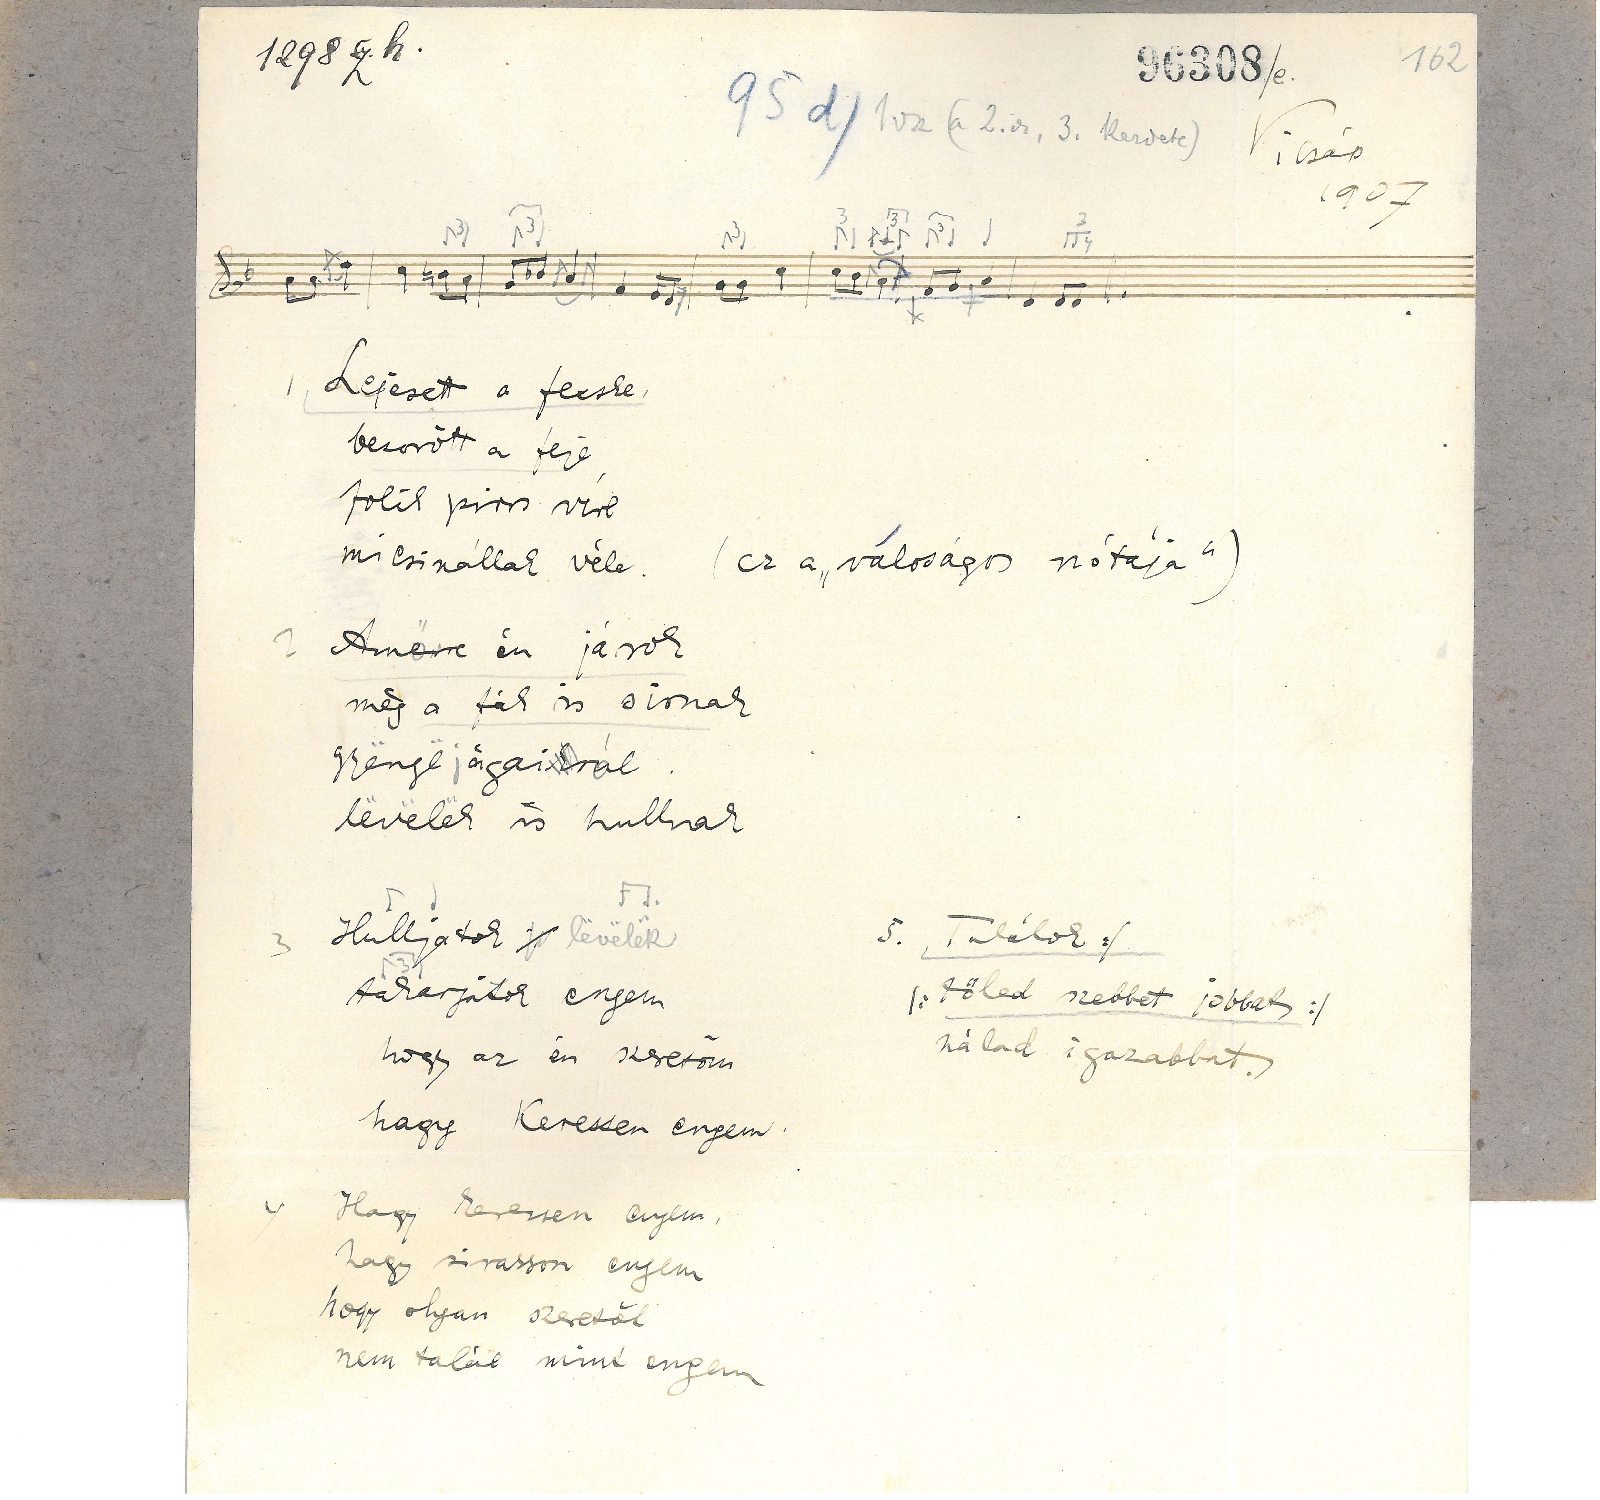 1298 h.
96308/e.
162
95 d) 1 vsz (a 2. vs, 3. kezdete)
Vicsáp
1907
1, Lejesett a fecske,
bezorött a feje
folik piros vére
micsinállak véle. (ez a „válóságos nótája")
2 Amëre én járok
még a fák is sirnak
gyëngë jágairul.
lëvëlek is hullnak
3 Hulljatok lëvëlëk
takarjátok engem
hogy az én szeretőm
hagy Keressen engem.
4 Hagy keressen engem,
hagy sirasson engem
hogy olyan szeretőt
nem talál mint engem
5. Találok :/
/: tőled szebbet jobbat :/
nálad igazabbat.